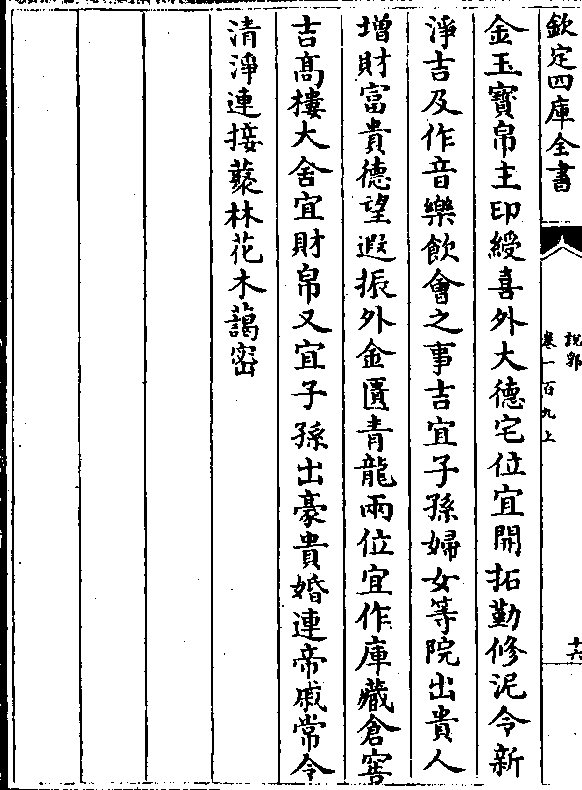 欽定四庫全書
說郛
卷一百九上
十六
金玉寶帛主印綬喜外大德宅位宜開拓勤修泥令新
淨吉及作音樂飲會之事吉宜子孫婦女等院出貴人
增財富貴德望遐振外金匱青龍兩位宜作庫藏倉窖
吉髙樓大舍宜財帛又宜子孫出豪貴婚連帝戚常令
清淨連接藂林花木藹密